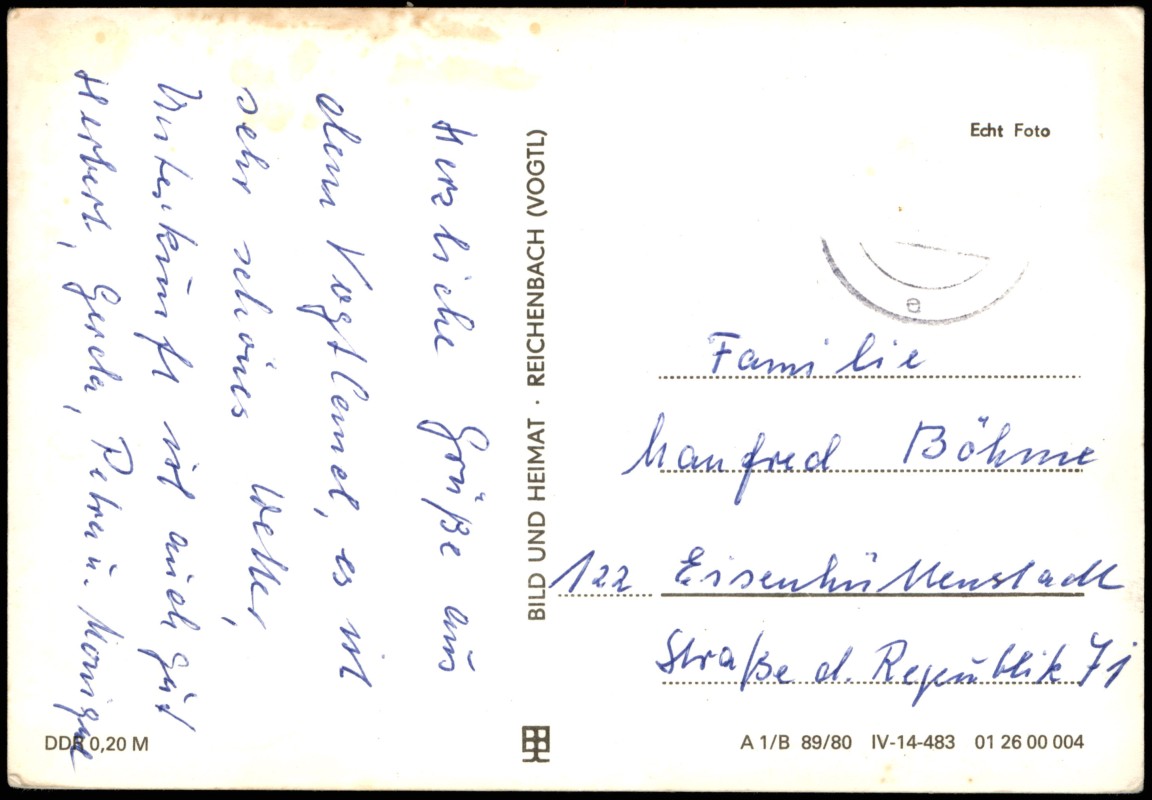 Herzliche Grüße aus
dem Vogtland, es ist
sehr schönes Wetter,
Unterkunft ist auch gut
Herbert, Gerda, Petra u. Monique
BILD UND HEIMAT · REICHENBACH (VOGTL)
Echt Foto
e
Familie
Manfred Böhme
122 Eisenhüttenstadt
Straße d. Republik 71
DDR 0,20 M
A 1/B 89/80 IV-14-483 01 26 00 004